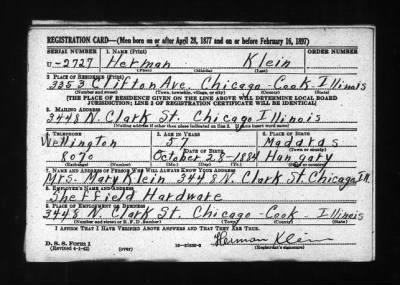 REGISTRATION CARD—(Men born on or after April 28, 1877 and on or before February 16, 1897)
SERIAL NUMBER 1. NAME (Print) ORDER NUMBER
U-2727 Herman Klein
(First) (Middle) (Last)
2. PLACE OF RESIDENCE (Print)
3353 Clifton Ave. Chicago-Cook-Illinois
(Number and street) (Town, township, village, or city) (County) (State)
[THE PLACE OF RESIDENCE GIVEN ON THE LINE ABOVE WILL DETERMINE LOCAL BOARD
JURISDICTION; LINE 2 OF REGISTRATION CERTIFICATE WILL BE IDENTICAL]
3. MAILING ADDRESS
3448 N. Clark St. Chicago Illinois
(Mailing address if other than place indicated on line 2. If same insert word same)
4. TELEPHONE 5. AGE IN YEARS 6. PLACE OF BIRTH
Wellington 57 Madaras
DATE OF BIRTH (Town or county)
8070 October 28-1884 Hangary
(Exchange) (Number) (Mo.) (Day) (Yr.) (State or country)
7. NAME AND ADDRESS OF PERSON WHO WILL ALWAYS KNOW YOUR ADDRESS
Mrs. Mary Klein 3448 N. Clark St. Chicago, Ill.
8. EMPLOYER'S NAME AND ADDRESS
Sheffield Hardware
9. PLACE OF EMPLOYMENT OR BUSINESS
3448 N. Clark St. Chicago-Cook-Illinois
(Number and street or R. F. D. number) (Town) (County) (State)
I AFFIRM THAT I HAVE VERIFIED ABOVE ANSWERS AND THAT THEY ARE TRUE.
Herman Klein
D. S. S. Form 1
(Revised 4-1-42) (over) (Registrant's signature)